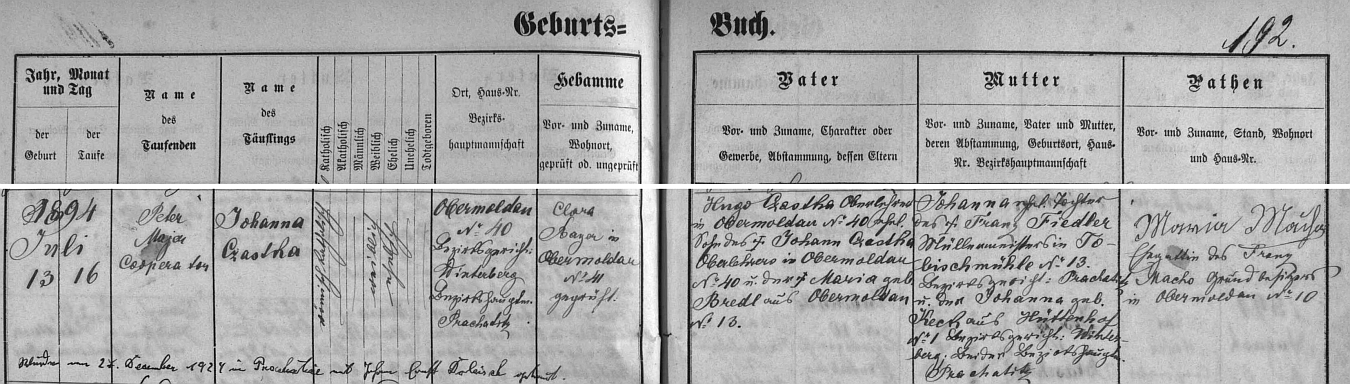 Geburts=
Buch.
192.
Jahr, Monat
und Tag
der
Geburt
der
Taufe
Name
des
Taufenden
Name
des
Täuflings
Katholisch
Akatholisch
Männlich
Weiblich
Ehelich
Unehelich
Todtgeboren
Ort, Haus-Nr.
Bezirks-
hauptmannschaft
Hebamme
Vor- und Zuname,
Wohnort,
geprüft od. ungeprüft
Vater
Vor- und Zuname, Charakter oder
Gewerbe, Abstammung, dessen Eltern
Mutter
Vor- und Zuname, Vater und Mutter,
deren Abstammung, Geburtsort, Haus-
Nr. Bezirkshauptmannschaft
Pathen
Vor- und Zuname, Stand, Wohnort
und Haus-Nr.
1894
Juli
13 16
Peter
Major
Cooperator
Johanna
Czastka
Obermoldau
No 40
Bezirksgericht:
Winterberg
Bezirkshauptm.
Prachatitz
Clara
in
Obermoldau
No 41
geprüft.
Hugo Czastka Oberlehrer
in Obermoldau No 40, ehel.
Sohn des † Johann Czastka
in Obermoldau
No 40 u. der † Maria geb.
Bredl aus Obermoldau
No 13.
Johanna ehel. Tochter
des † Franz Fiedler
Müllermeisters in To-
bischmühle No 13.
Bezirksgericht: Prachatitz
u. der Johanna geb.
aus Hüttenhof
No 1 Bezirksgericht: Winter-
berg; beider Bezirkshauptm.
Prachatitz
Maria Macho
Ehegattin des Franz
Macho Grundbesitzers
in Obermoldau No 10
Wurde am 27. Dezember 1924 in Prachatitz mit Ernst getraut.